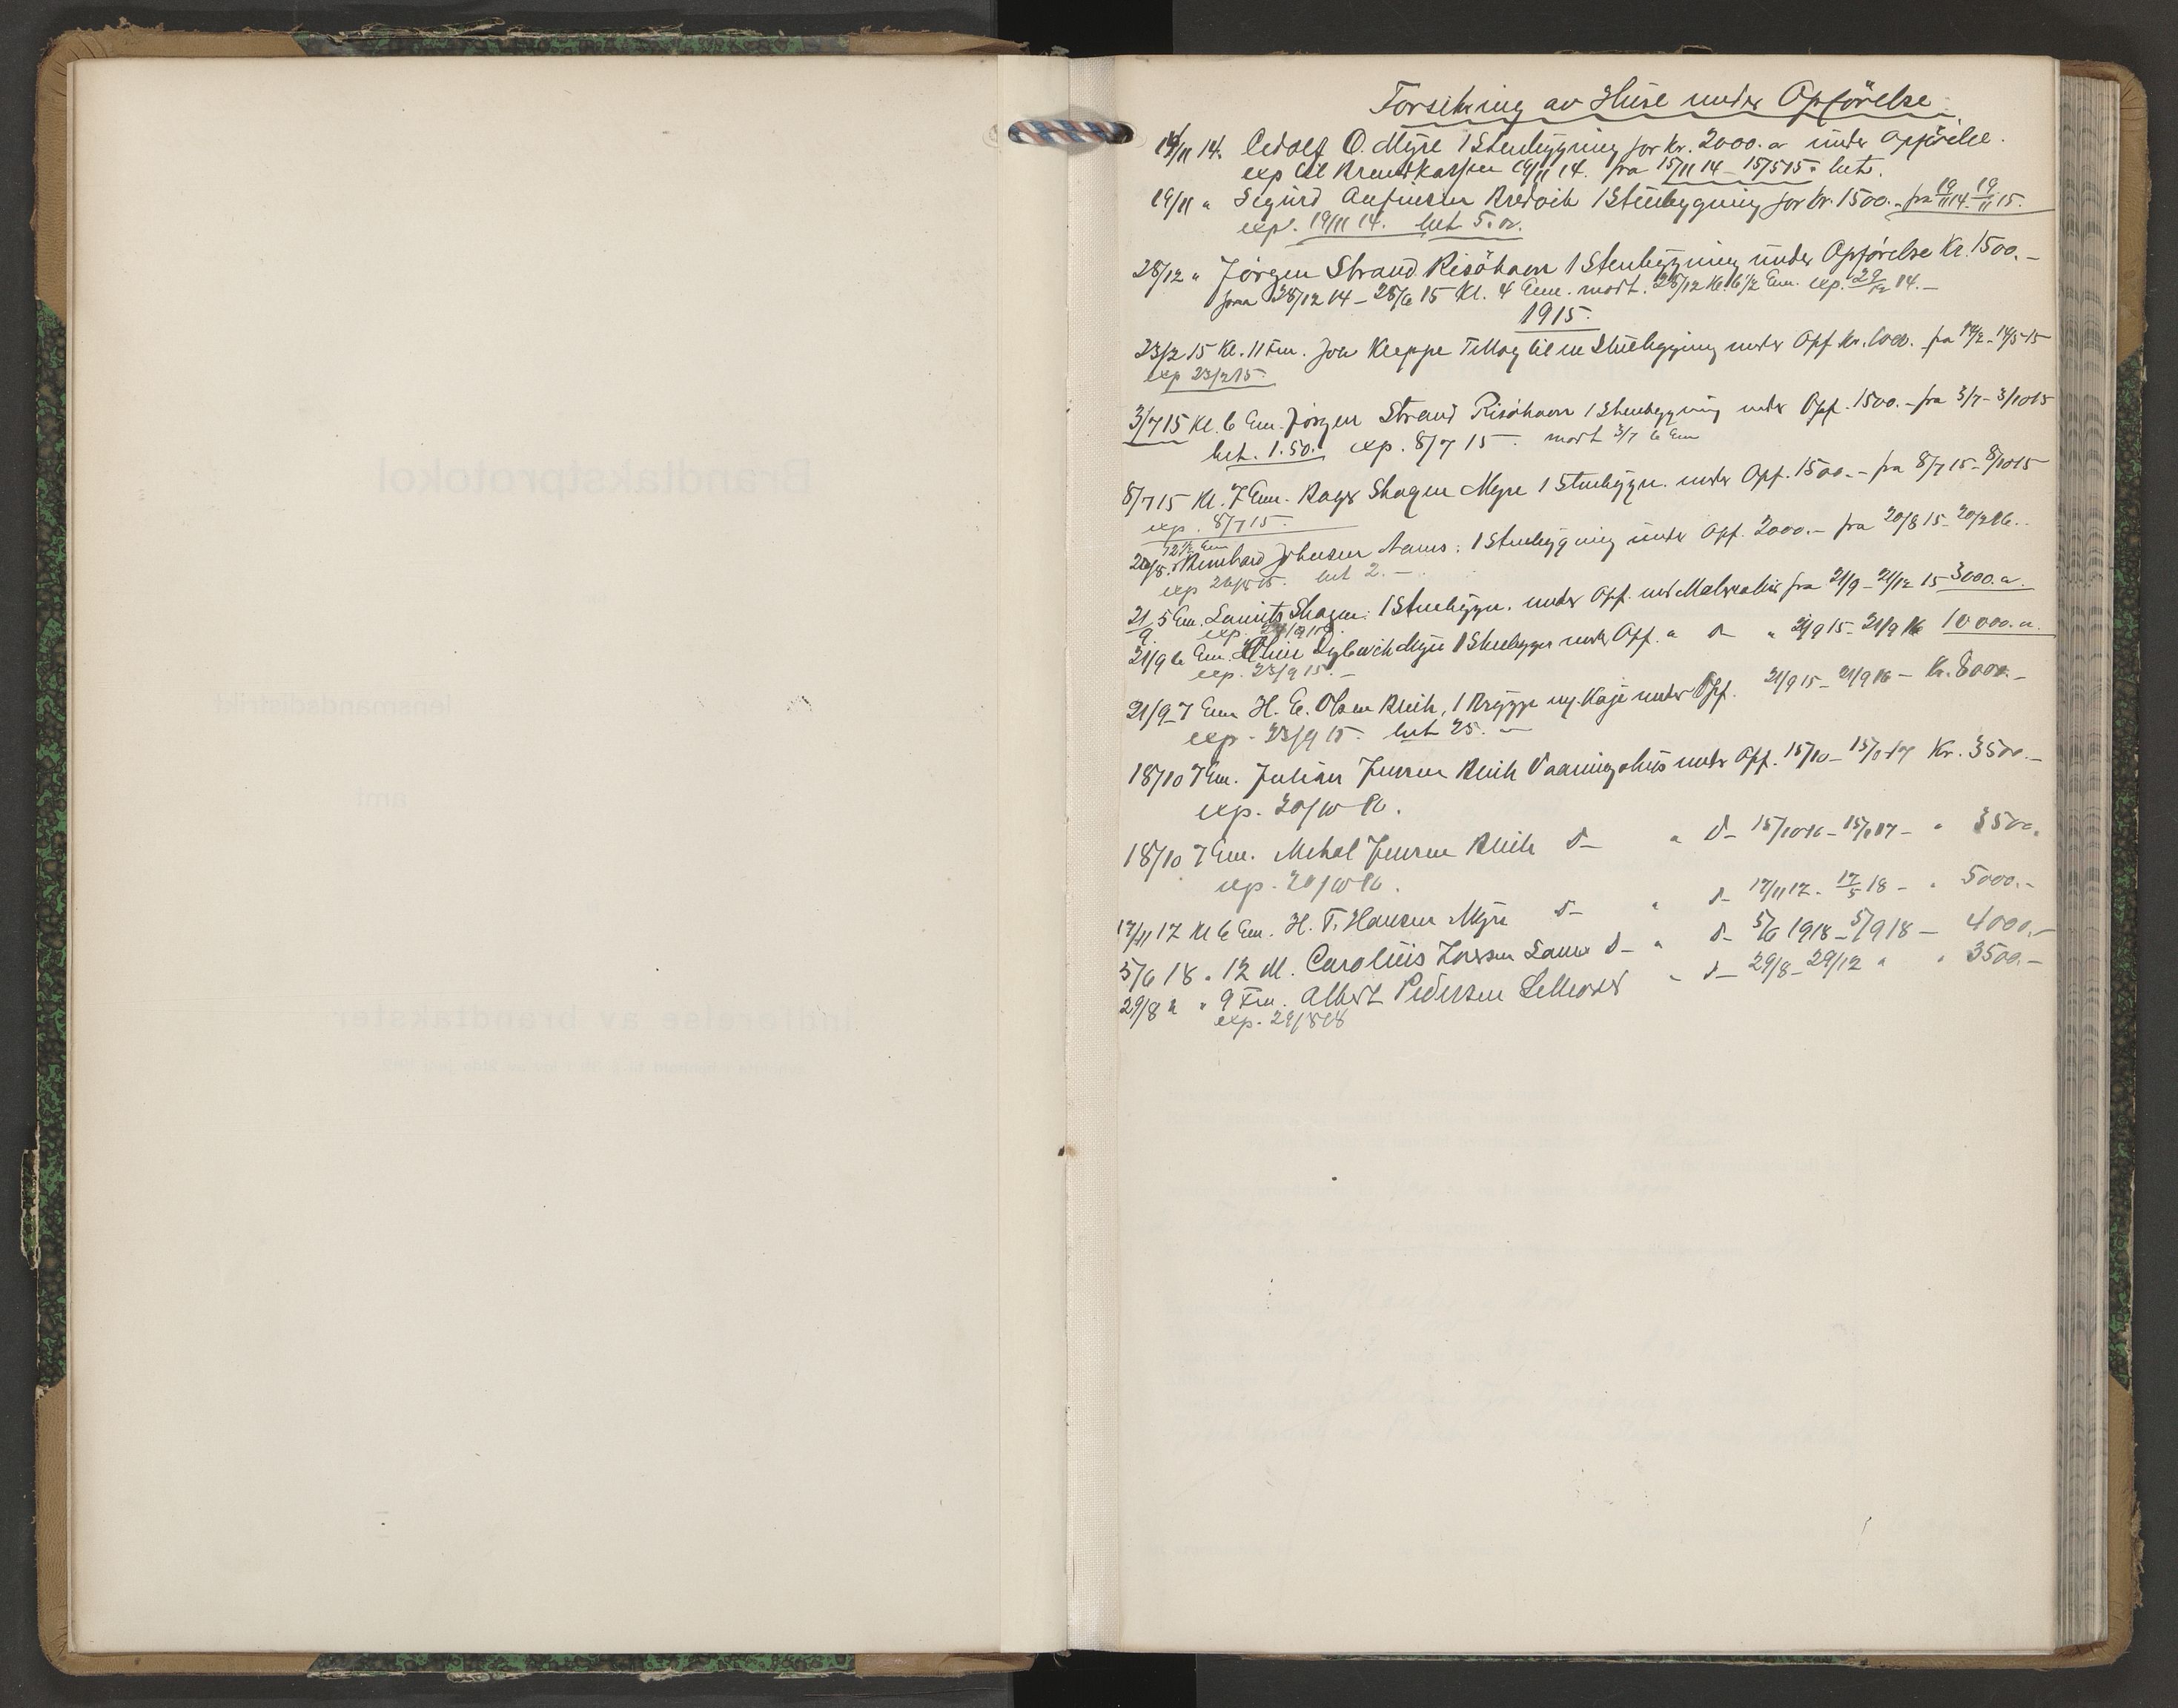 Forsikring av Huse under Opførelse.
19/11 14. Adolf O. Myre 1 Stenbygning for kr. 2000.00 under Opførelse.
exp til Brandkassen 19/11 14. fra 15/11 14 - 15/5 15. bet.
19/11 " Sigurd Anfinsen Bredvik 1 Stuebygning for kr. 1500.- fra 19/11 14 - 19/11 15.
exp. 19/11 14. bet 5.00.
28/12 " Jørgen Strand Risøhavn 1 Stuebygning under Opførelse Kr. 1500.-
fraa 28/12 14 - 28/6 15 Kl. 4 Em. mott. 28/12 Kl. 6 1/2 Em. exp. 29/12 14.-
1915.
23/2 15 Kl. 11 Fm. Joh Kleppe Tillæg til en Stuebygning under Opf kr. 1000. fra 14/2 - 14/5 15
exp 23/2 15.
3/7 15 Kl. 6 Em. Jørgen Strand Risøhavn 1 Stuebygning under Opf. 1500.- fra 3/7 - 3/10 15
bet. 1.50. exp. 8/7 15. mott 3/7 6 Em
8/7 15 Kl. 7 Em. Skagen Myre 1 Stuebygn. under Opf. 1500.- fra 8/7 15 - 8/10 15
exp. 8/7 15.
12 1/2 Em
20/8. Johnsen 1 Stuebygning under Opf. 2000.- fra 20/8 15 - 20/2 16.
exp 26/8 15. bet 2.-
21/9. 5 Em. Skagen: 1 Stuebygn. under Opf. med Materialier fra 21/9 - 21/12 15 3000.00
exp. 23/9 15.
21/9 6 Em. Myre 1 Stuebygn under Opf. " d- " 21/9 15 - 21/9 16 10000.00
exp. 23/9 15.-
21/9 7 Em H. E. Olsen Bleik, 1 Brygge og Kaje under Opf. 21/9 15 - 21/9 16 - Kr. 8000.-
exp. 23/9 15. bet 25.-
18/10 7 Em. Julian Jensen Bleik Vaaningshus under Opf. 15/10 - 15/1 17 Kr. 3500.-
exp. 20/10 16.
18/10 7 Em. Mekal Jensen Bleik d- " d- 15/10 16 - 15/1 17 - " 3500.
exp. 20/10 16.
17/11 17 Kl 6 Em. H. T. Hansen Myre d- " d- 17/11 17 - 17/5 18 - " 5000.-
5/6 18 " 12 M. Carolius Larsen d- " d- 5/6 1918 - 5/9 18 - 4000.-
29/8 " " 9 Fm. Albert Pedersen " d- 29/8 - 29/12 " " 3500.-
exp. 29/8 18